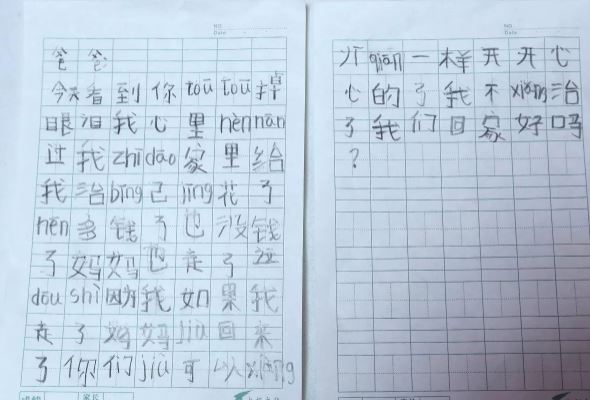 NO.
Date
爸爸:
今天看到你tōutōu掉
眼泪我心里hěnnán
过我zhīdào家里给
我治bìng已jīng花了
hěn多钱了也没钱
了妈妈也走了这
dōushì因为我如果我
走了妈妈jiù回来
了你们jiù可以xiàng
家长
NO.
Date
以qián一样开开心
心的了我不xiǎng治
了我们回家好吗
?